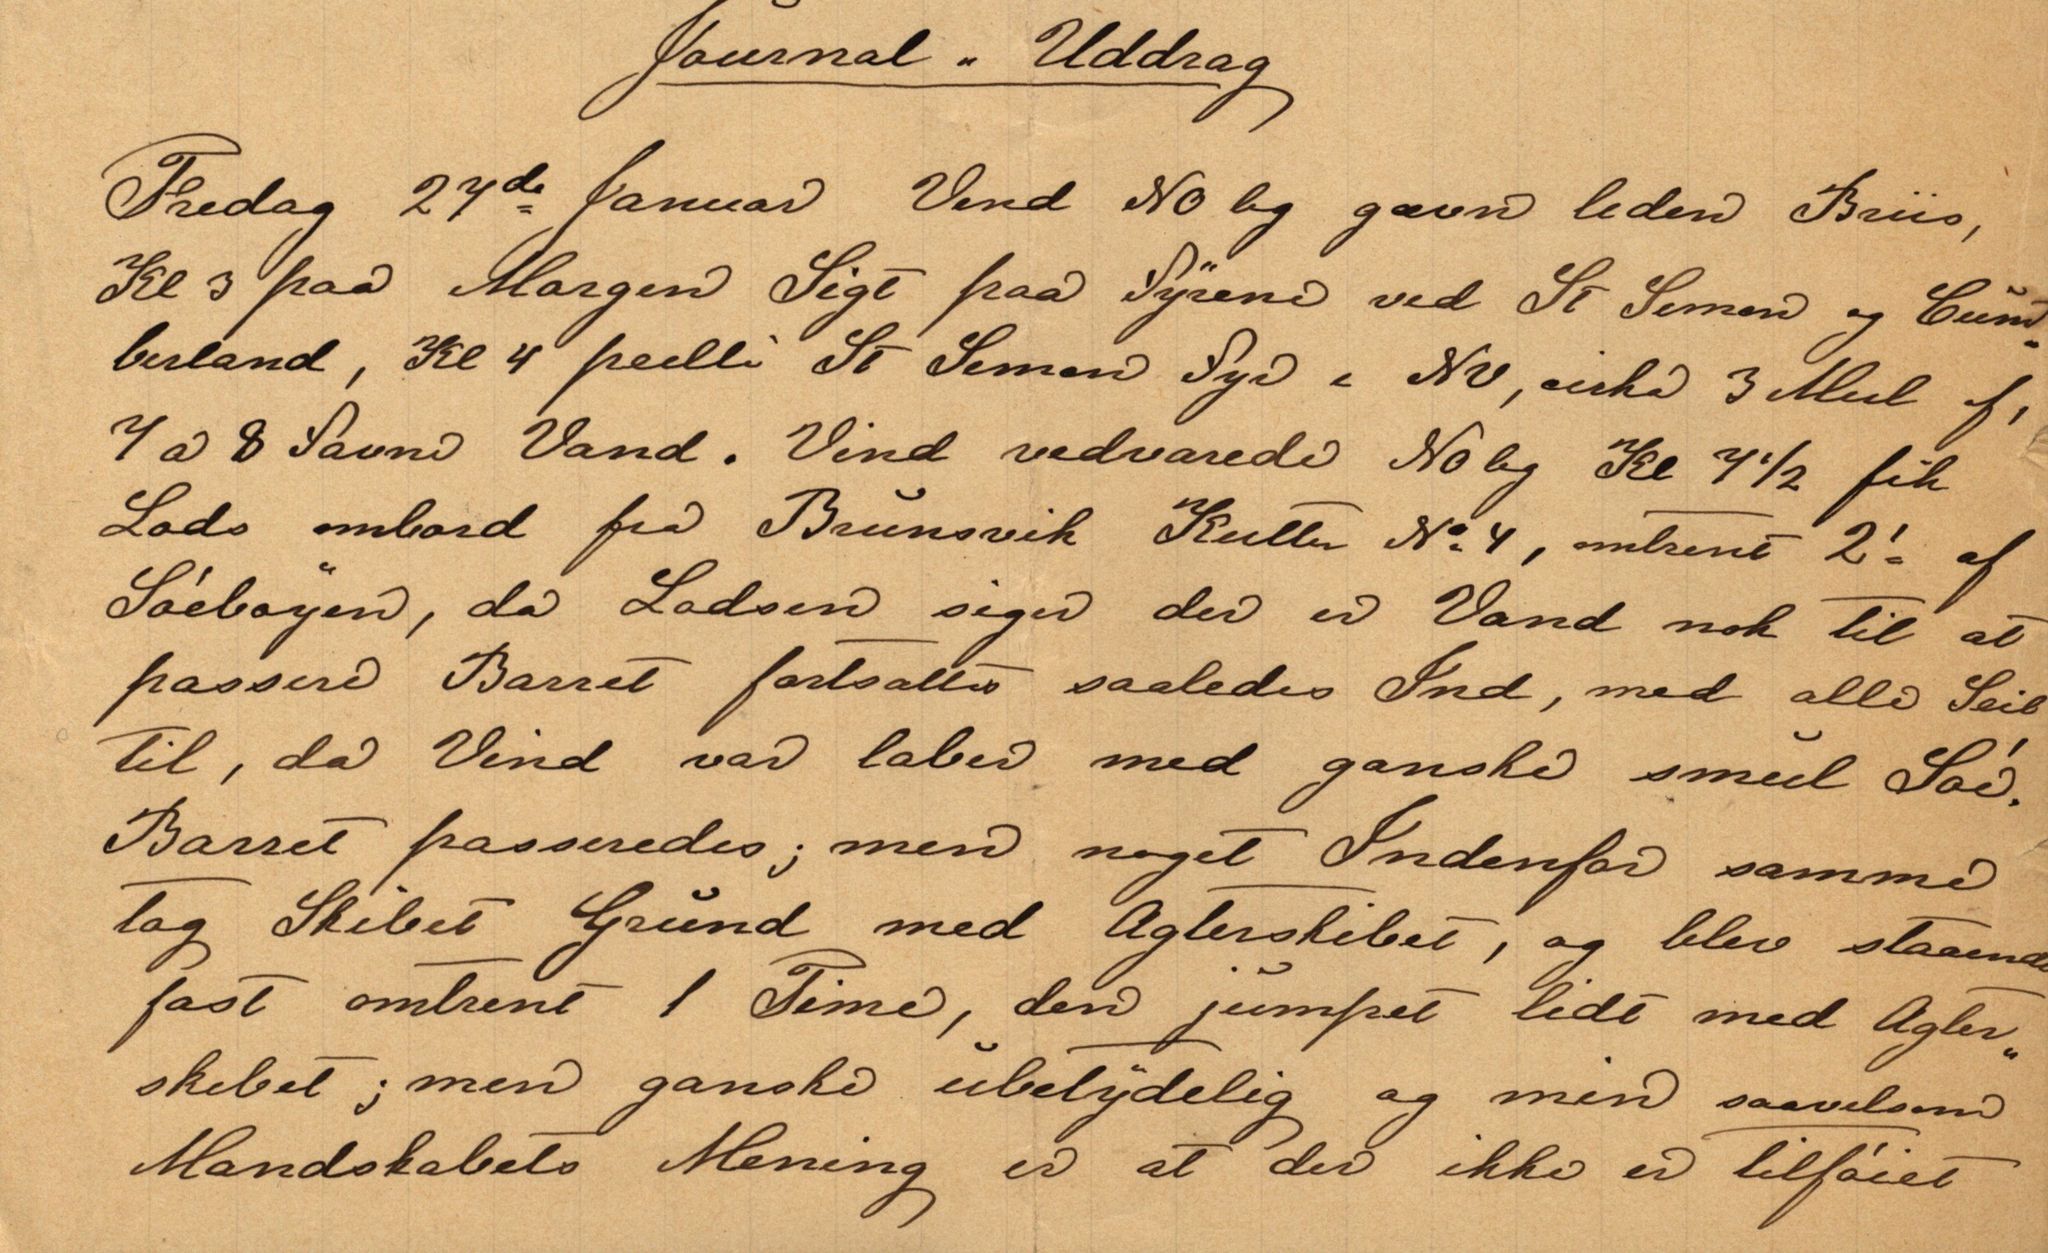 Journal-Uddrag
Fredag 27de Januar Vind NO lig gævn liden Briis,
Kl 3 paa Morgen Sigt paa Fÿrene ved St Simon og Cum-
berland, Kl 4 peilte St Simon Fyr i NV, cirka 3 Miil af,
7 a 8 Favne Vand. Vind vedvarede NO lig Kl 7 1/2 fik
Lods ombord fra Brŭnsvik Kutter No 4, omtrent 2' af
Söeboÿen, da Lodsen siger der er Vand nok til at
passere Barret fortsattes saaledes Ind, med alle Seil
til, da Vind var laber med ganske smŭl Söe.
Barret passeredes; men noget Indenfor samme
tog Skibet Grŭnd med Agterskibet, og blev staaende
fast omtrent 1 Time, den jŭmpet lidt med Agter-
skibet; men ganske ŭbetÿdelig og min saavelsom
Mandskabets Mening er at der ikke er tilföiet